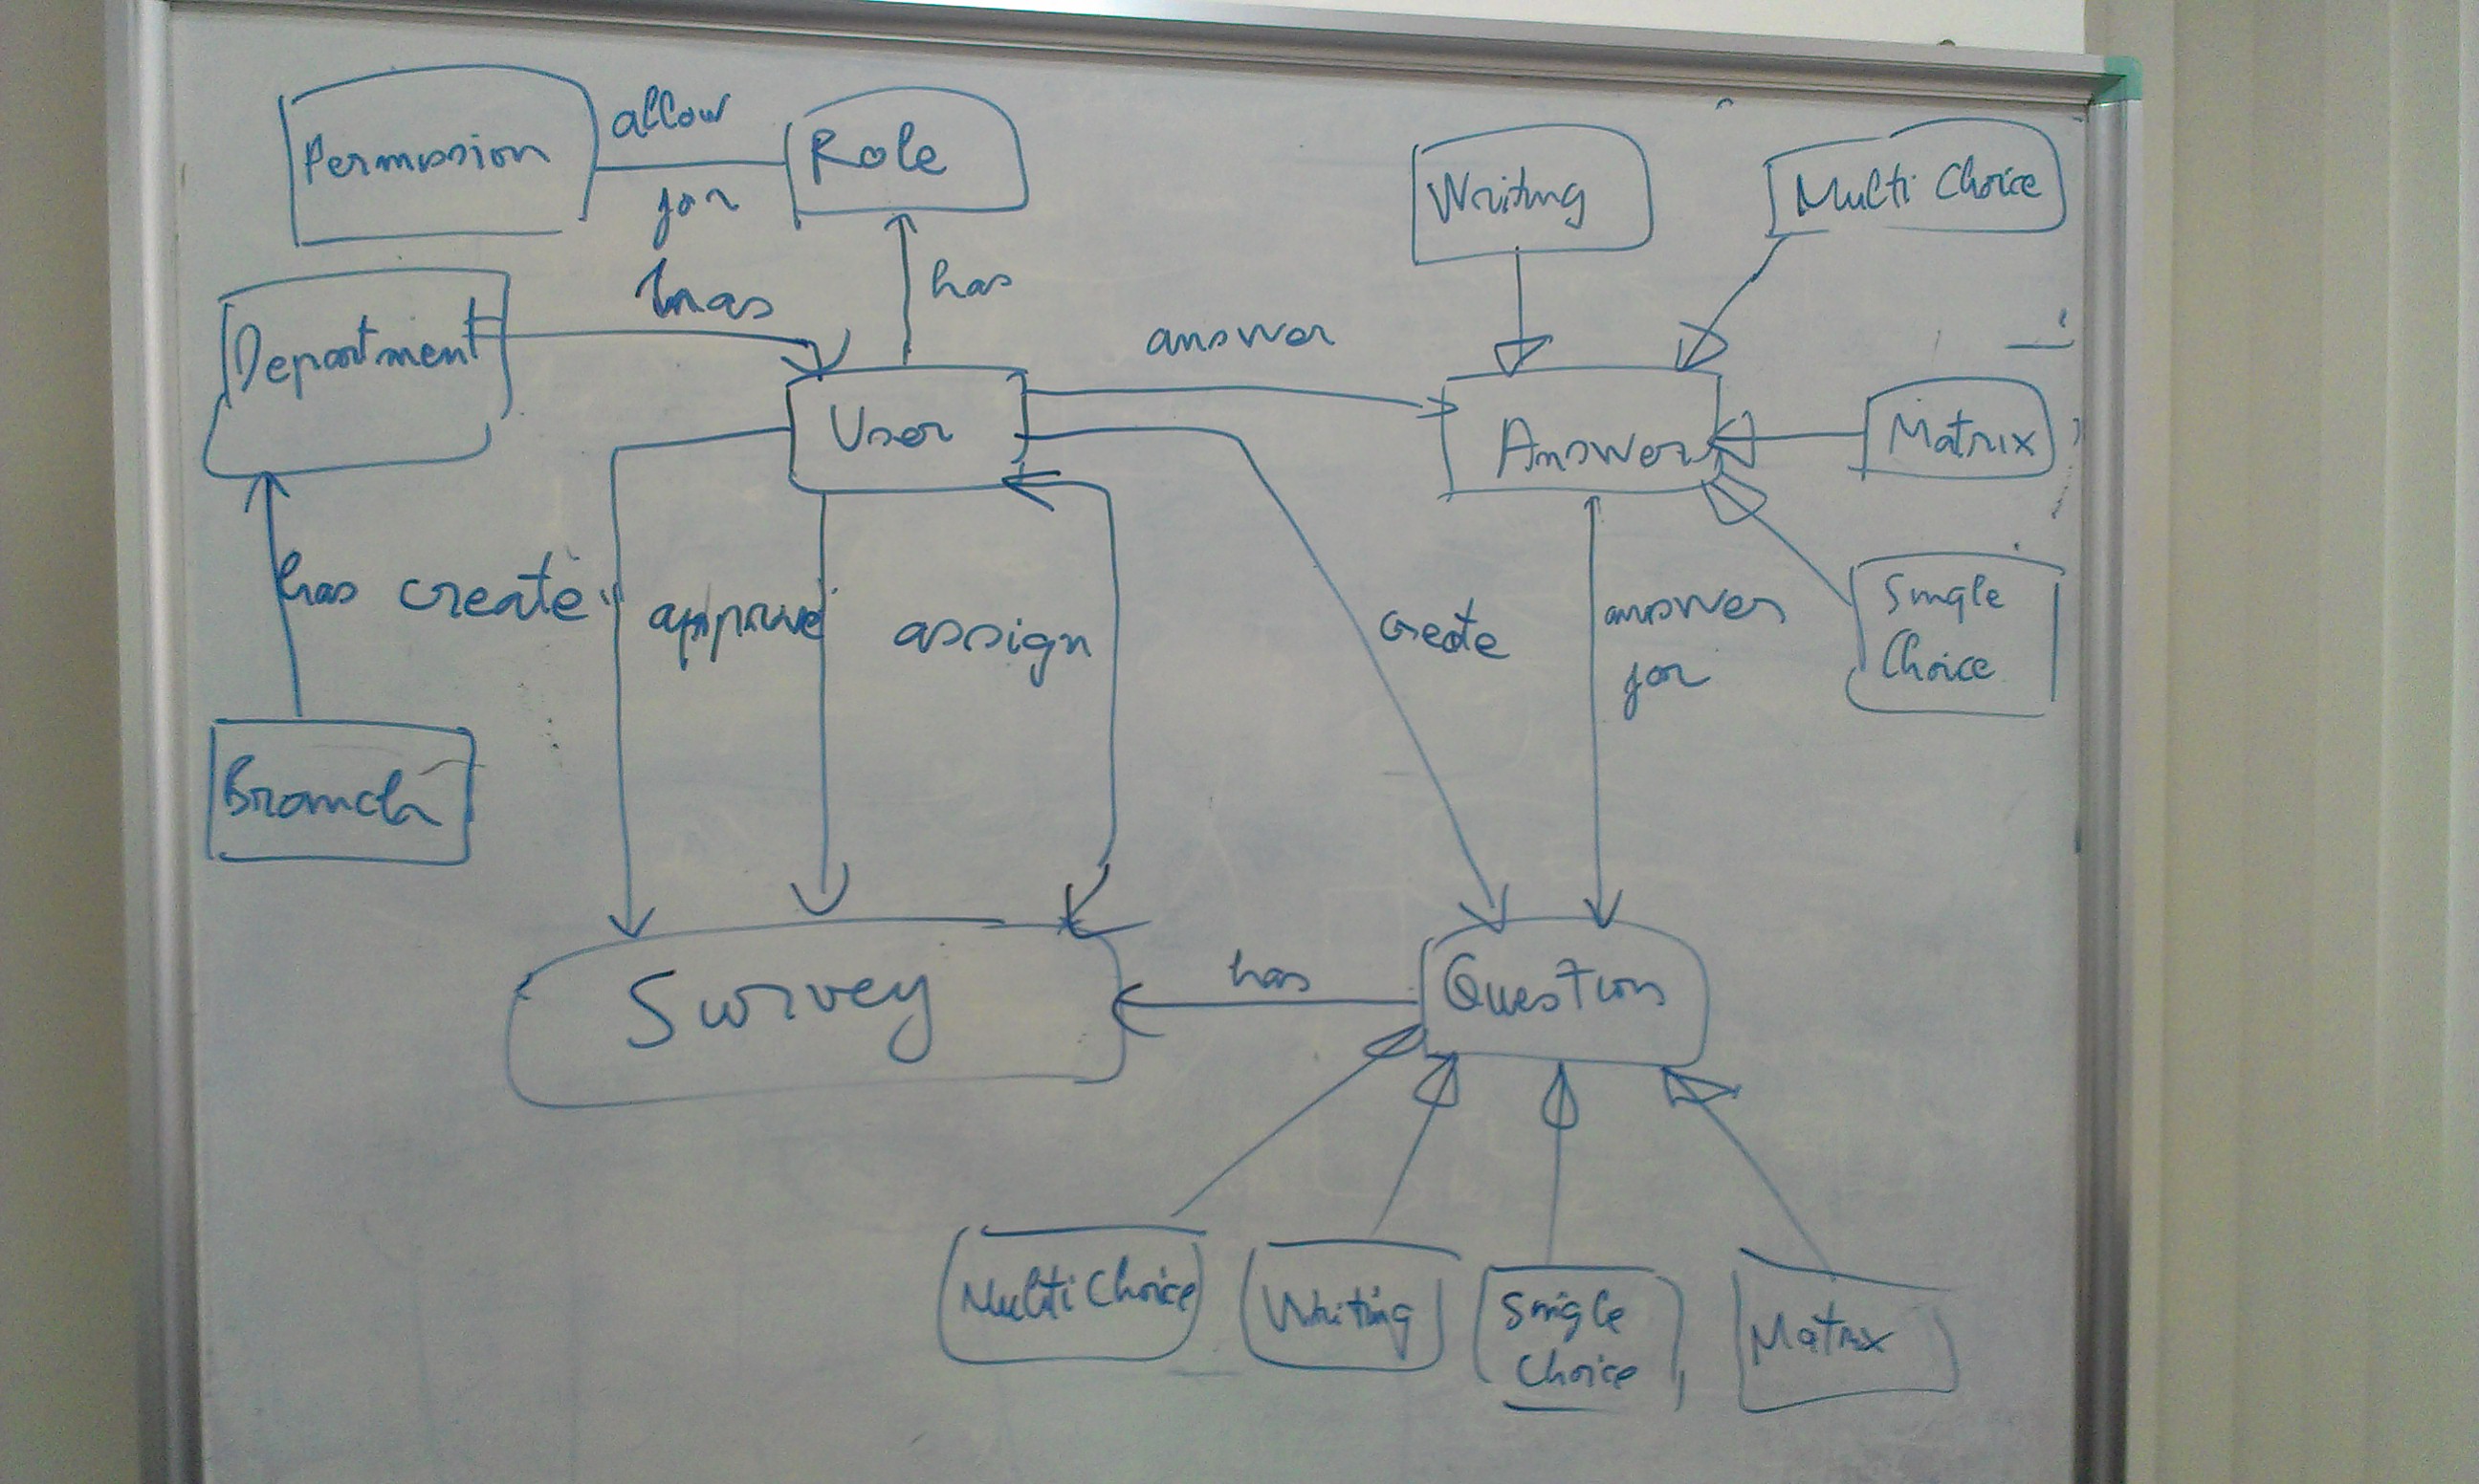 Permission
allow
for
Role
Writing
Multi Choice
Department
has
has
answer
User
Answer
Matrix
has
create
approve
assign
create
answer
for
Single
Choice
Branch
Survey
has
Question
Multi Choice
Writing
Single
Choice
Matrix